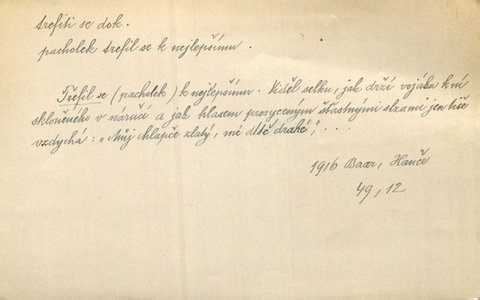 trefiti se dok.
pacholek trefil se k nejlepšímu.
Trefil se (pacholek) k nejlepšímu. Viděl selku, jak drží vojáka k ní
skloněného v náručí a jak hlasem prosyceným šťastnými slzami jen tiše
vzdychá: „Můj chlapče zlatý, mé dítě drahé," ...
1916 Baar, Hanče
49, 12